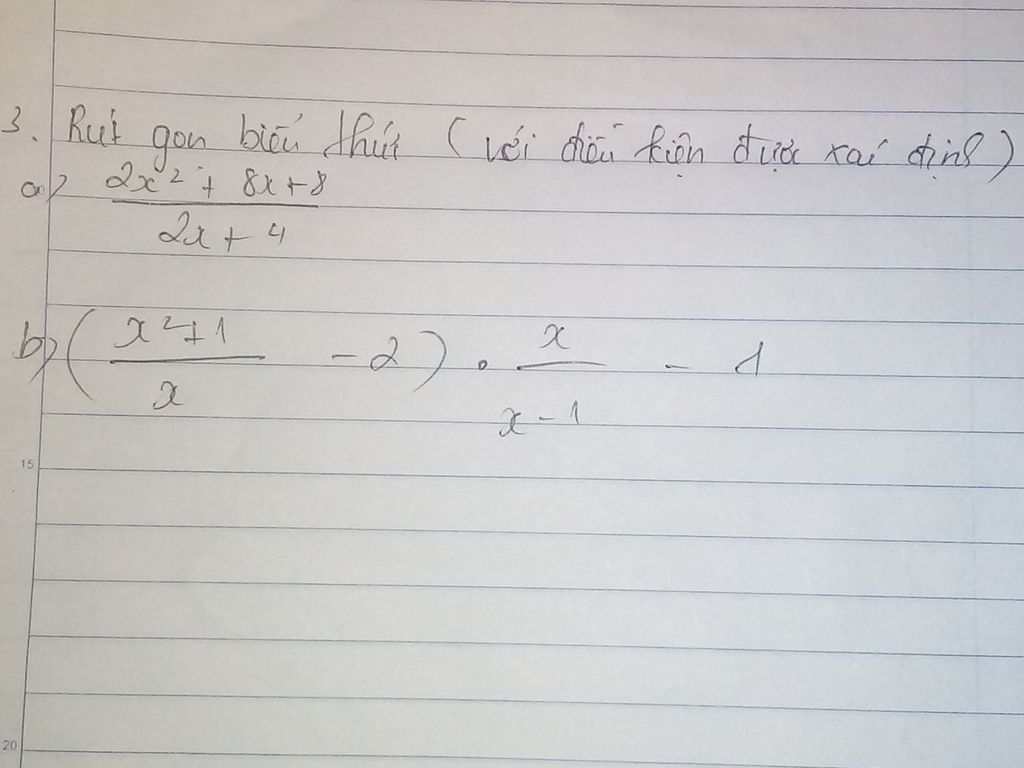 3. Rút gọn biểu thức (với điều kiện được xác định)
a) \frac{2x^2 + 8x + 8}{2x + 4}
b) \left( \frac{x^2 + 1}{x} - 2 \right) \cdot \frac{x}{x - 1} - 1
15
20